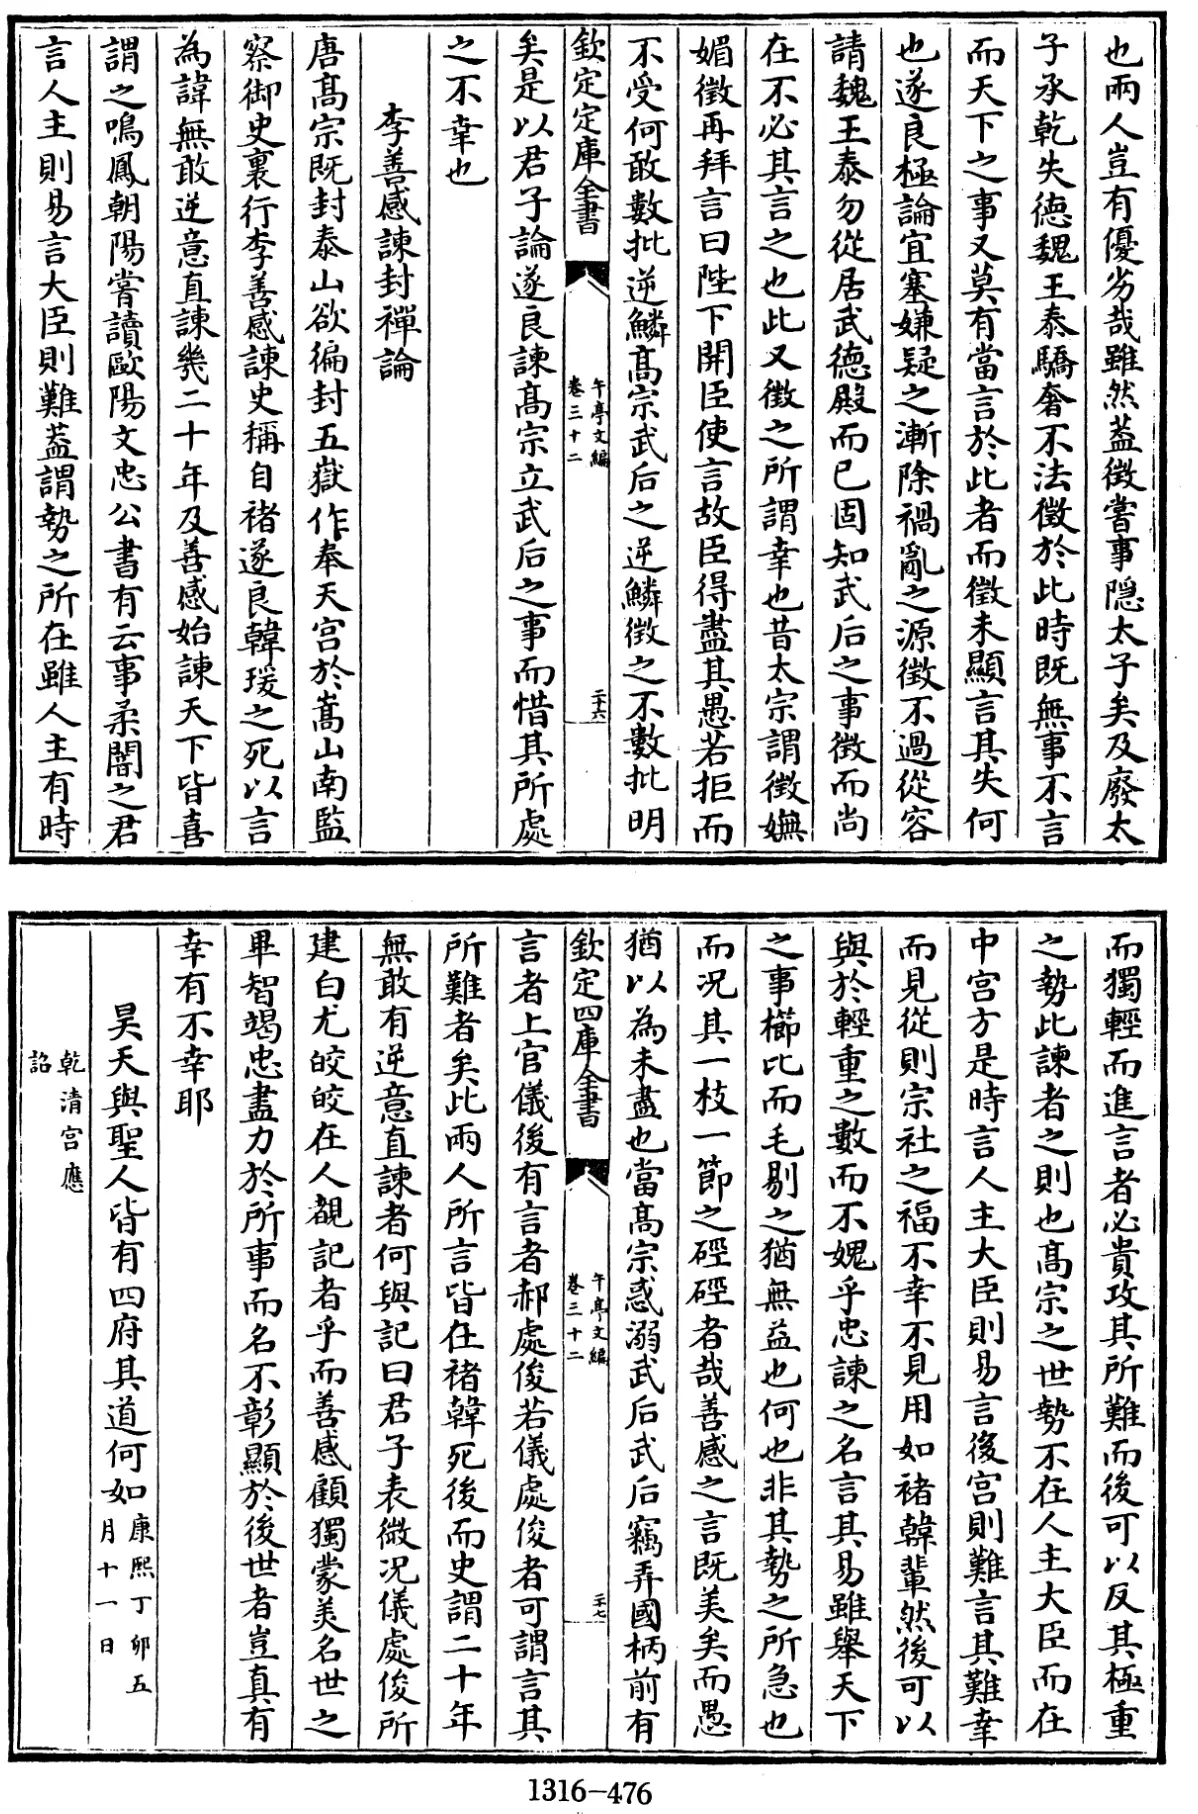 也兩人豈有優劣哉雖然葢徴嘗事隠太子矣及廢太
子承乾失德魏王泰驕奢不法徴於此時既無事不言
而天下之事又莫有當言於此者而徴未顯言其失何
也遂良極論宜塞嫌疑之漸除禍亂之源徴不過從容
請魏王泰勿從居武德殿而已固知武后之事徴而尚
在不必其言之也此又徴之所謂幸也昔太宗謂徴嫵
媚徴再拜言曰陛下開臣使言故臣得盡其愚若拒而
不受何敢數批逆鱗髙宗武后之逆鱗徴之不數批明
欽定定庫全書
午亭文編
卷三十二
二十六
矣是以君子論遂良諫髙宗立武后之事而惜其所處
之不幸也
李善感諫封禪論
唐髙宗既封泰山欲徧封五嶽作奉天宫於嵩山南監
察御史裏行李善感諫史稱自禇遂良韓瑗之死以言
為諱無敢逆意直諫幾二十年及善感始諫天下皆喜
謂之鳴鳳朝陽嘗讀歐陽文忠公書有云事柔闇之君
言人主則易言大臣則難葢謂勢之所在雖人主有時
而獨輕而進言者必貴攻其所難而後可以反其極重
之勢此諫者之則也髙宗之世勢不在人主大臣而在
中宫方是時言人主大臣則易言後宫則難言其難幸
而見從則宗社之福不幸不見用如禇韓輩然後可以
與於輕重之數而不媿乎忠諫之名言其易雖舉天下
之事櫛比而毛剔之猶無益也何也非其勢之所急也
而况其一枝一節之硜硜者哉善感之言既美矣而愚
猶以為未盡也當髙宗惑溺武后武后竊弄國柄前有
欽定四庫全書
午亭文編
卷三十二
二十七
言者上官儀後有言者郝處俊若儀處俊者可謂言其
所難者矣此兩人所言皆在禇韓死後而史謂二十年
無敢有逆意直諫者何與記曰君子表微况儀處俊所
建白尤皎皎在人覩記者乎而善感顧獨蒙美名世之
畢智竭忠盡力於所事而名不彰顯於後世者豈真有
幸有不幸耶
昊天與聖人皆有四府其道何如康熙丁卯五
月十一日
乾清宫應
詔
1316-476